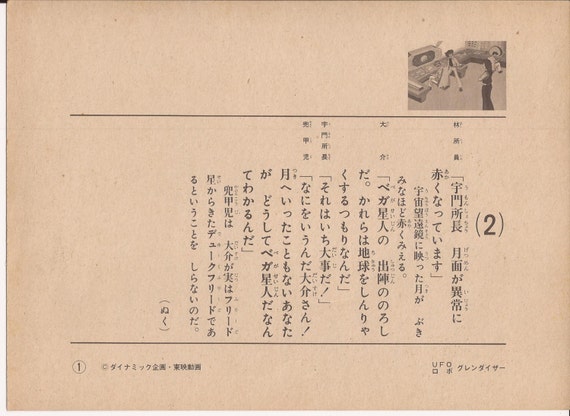 (2)
林所員
「宇門所長　月面が異常に
赤くなっています」
宇宙望遠鏡に映った月が　ぶき
みなほど赤くみえる。
大介
「ベガ星人の　出陣ののろし
だ。かれらは地球をしんりゃ
くするつもりなんだ」
宇門所長
「それはいち大事だ！」
兜甲児
「なにをいうんだ大介さん！
月へいったこともないあなた
が　どうしてベガ星人だなん
てわかるんだ」
兜甲児は　大介が実はフリード
星からきたデュークフリードであ
るということを　しらないのだ。
（ぬく）
① ©ダイナミック企画・東映動画
UFOロボ グレンダイザー